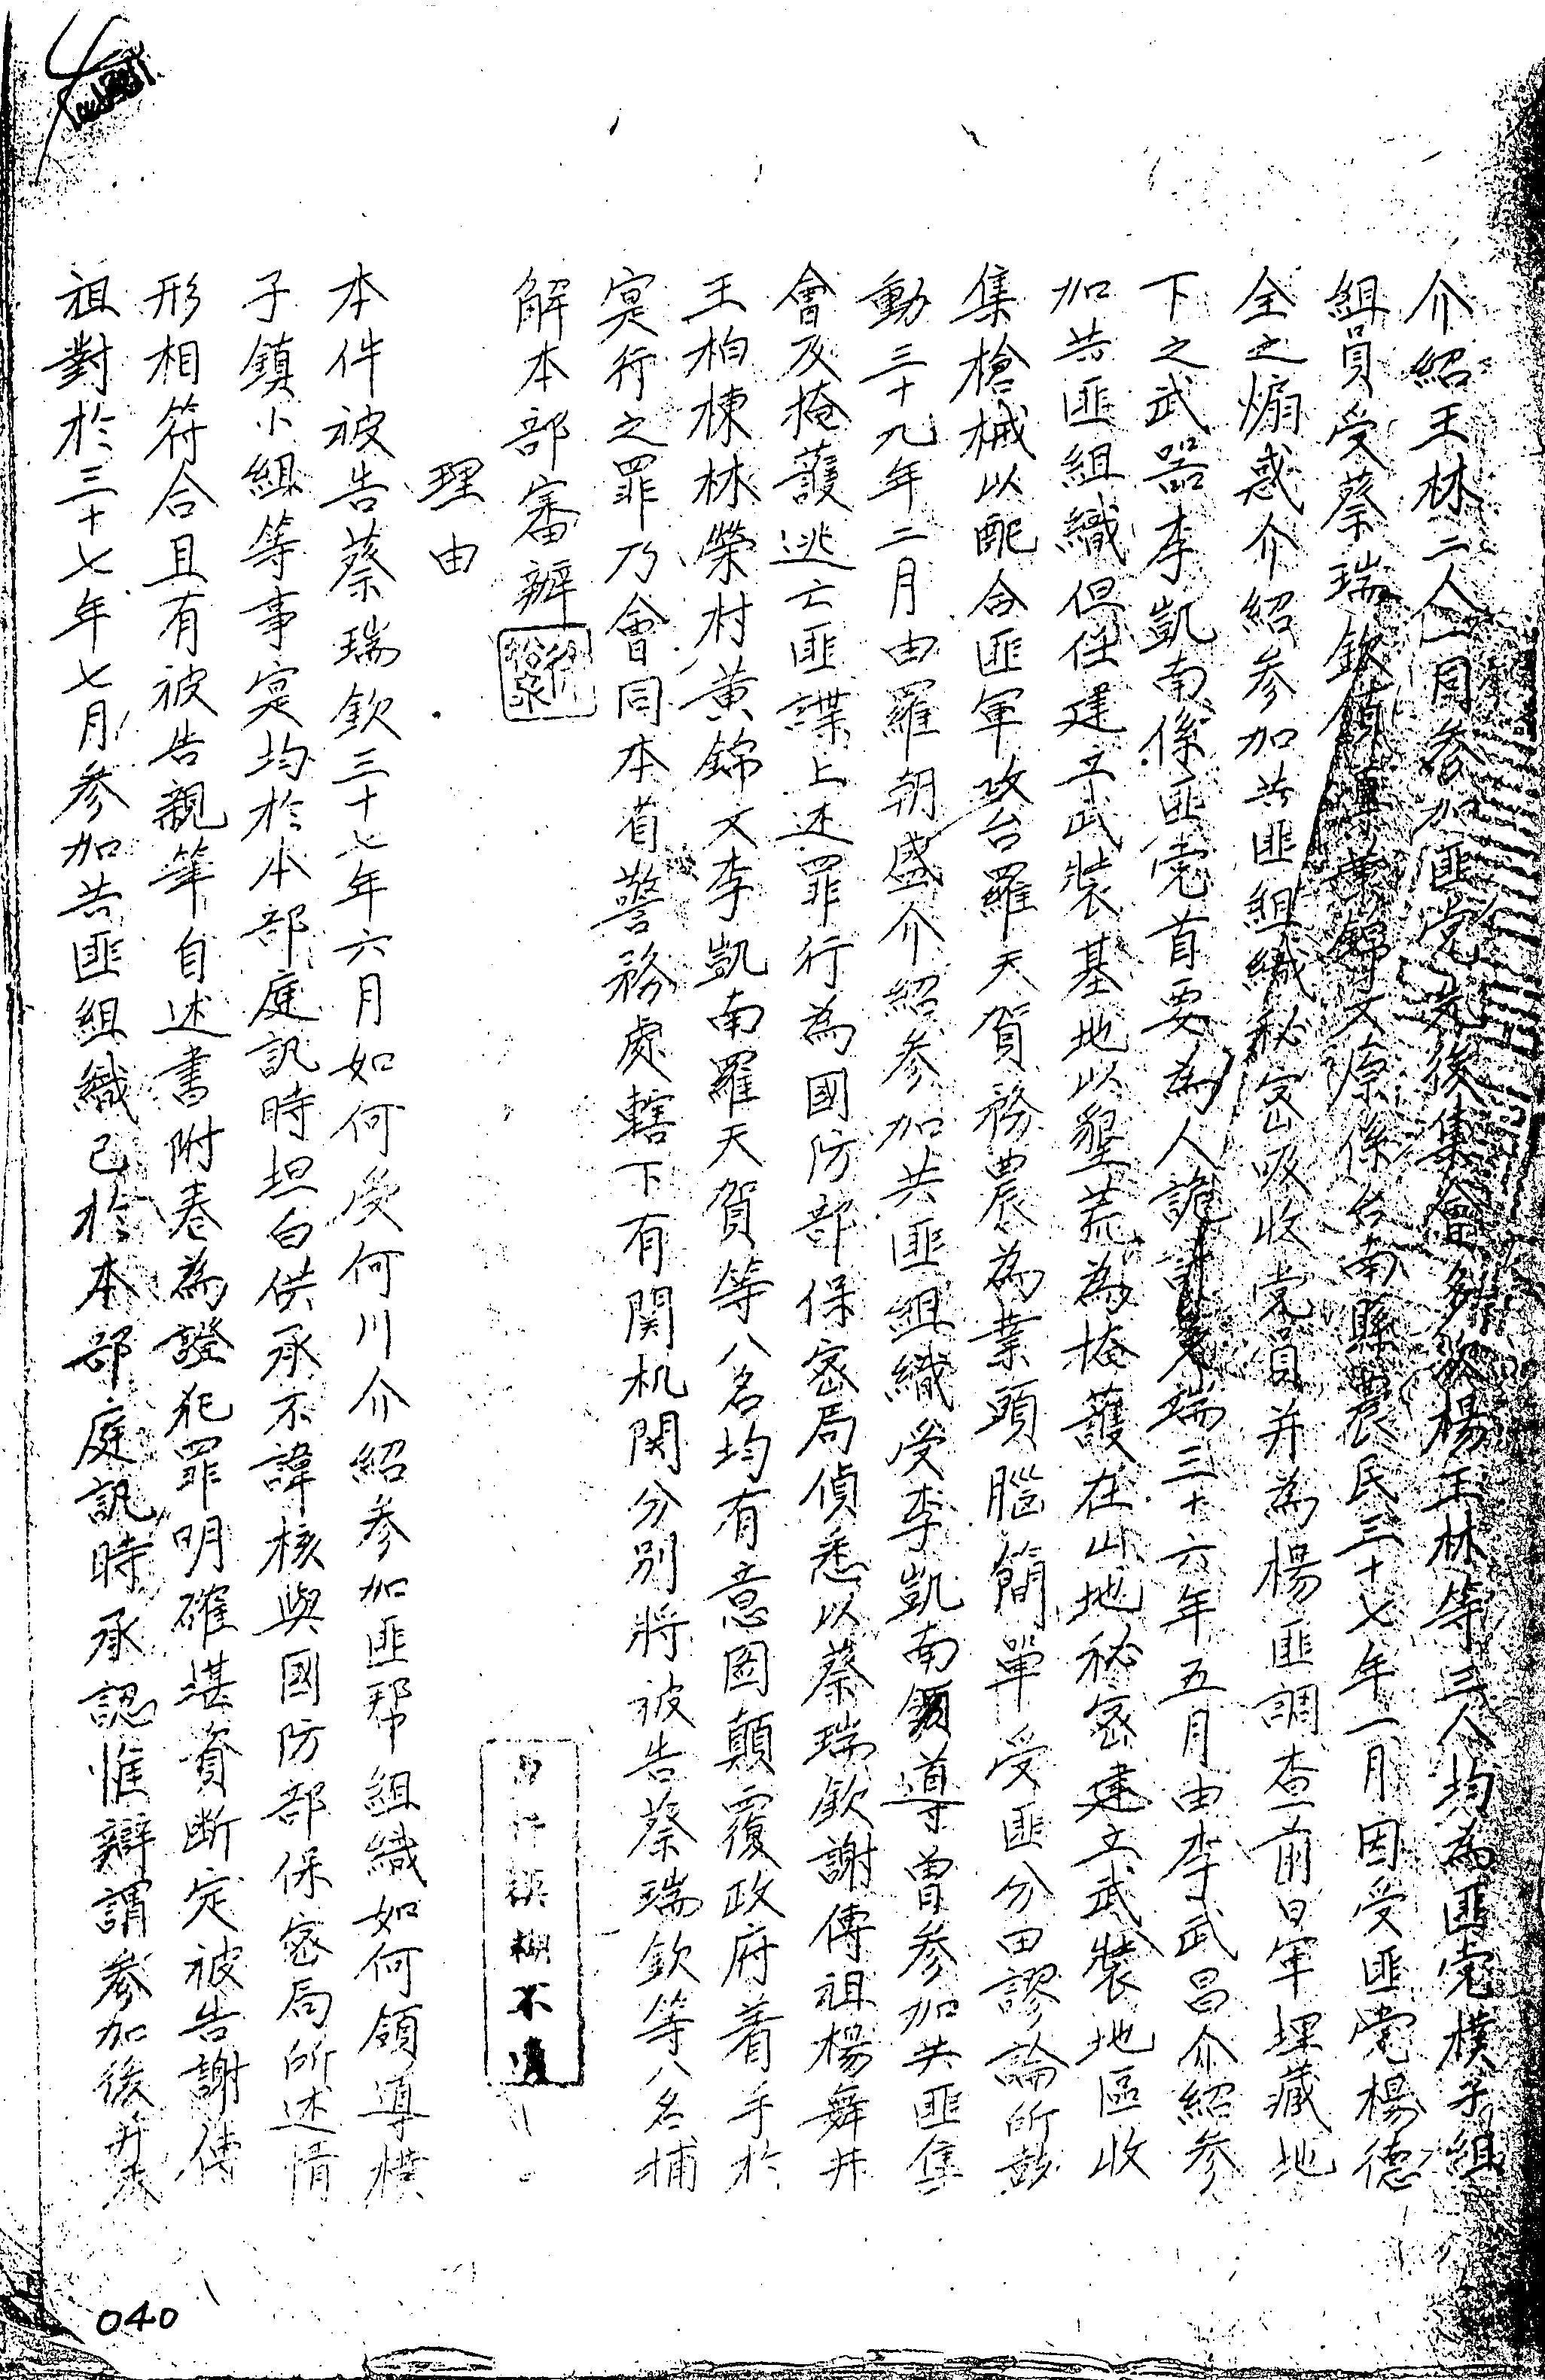 介紹王林二人一同參加匪党先後集會多次楊王林等三人均為匪党樸子組
組員受蔡瑞欽領導黃錦文原係台南縣農民三十七年一月因受匪党楊德
全之煽惑介紹参加共匪組織秘密吸收党員并為楊匪調查前日軍埋藏地
下之武器李凱南係匪党首要為人詭計多端三十六年五月由李武昌介紹参
加共匪組織但任建立武裝基地以墾荒為掩護在山地秘密建立武裝地區收
集槍械以配合匪軍攻台羅天賀務農為業頭腦簡單受匪分田謬論所鼓
動三十九年二月由羅朝盛介紹参加共匪組織受李凱南領導曾參加共匪集
會及掩護逃亡匪諜上述罪行為國防部保密局偵悉以蔡瑞欽謝傳祖楊舞井
王柏棟林榮村黃錦文李凱南羅天賀等八名均有意图顛覆政府着手於
寔行之罪乃會同本省警務處轄下有関机関分別將被告蔡瑞欽等八名捕
解本部審辦
理由
本件被告蔡瑞欽三十七年六月如何受何川介紹参加匪帮組織如何領導樸
子鎮小組等事寔均於本部庭訊時坦白供承不諱核與國防部保密局所述情
形相符合且有被告親筆自述書附卷為證犯罪明確堪資断定被告謝傳
祖對於三十七年七月参加共匪組織已於本部庭訊時承認惟辯謂参加後并未
模糊不清
040